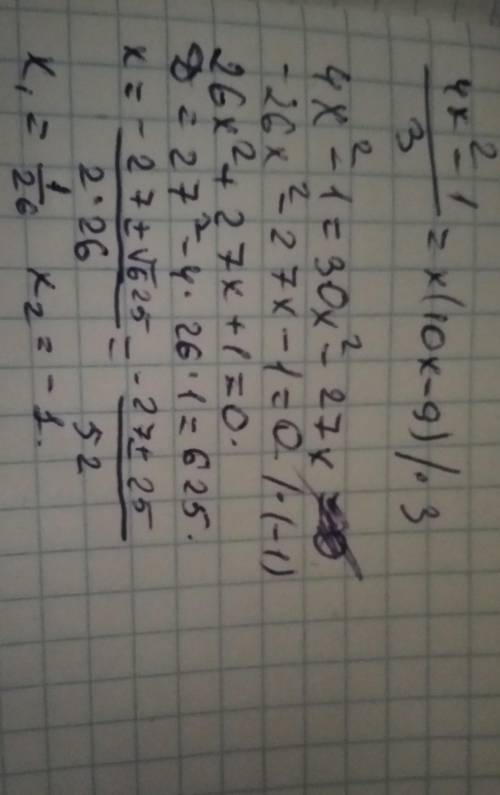 (4x² - 1)/3 = x(10x - 9) / · 3
4x² - 1 = 30x² - 27x
-26x² - 27x - 1 = 0 / · (-1)
26x² + 27x + 1 = 0.
D = 27² - 4 · 26 · 1 = 625.
x = (-27 ± √625)/(2 · 26) = (-27 ± 25)/52
x₁ = 1/26 x₂ = -1.